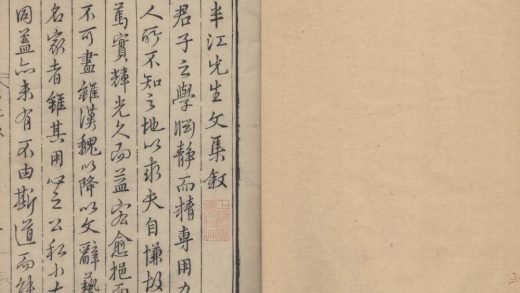 半江先生文集敘
君子之學靜而精專用力
人所不知之地以求夫自慊故
篤實輝光久而益宏愈挹而
不可盡雖漢魏以降以文辭藝
名家者雖其用心之公私小大
同蓋亦未有不由斯道而能